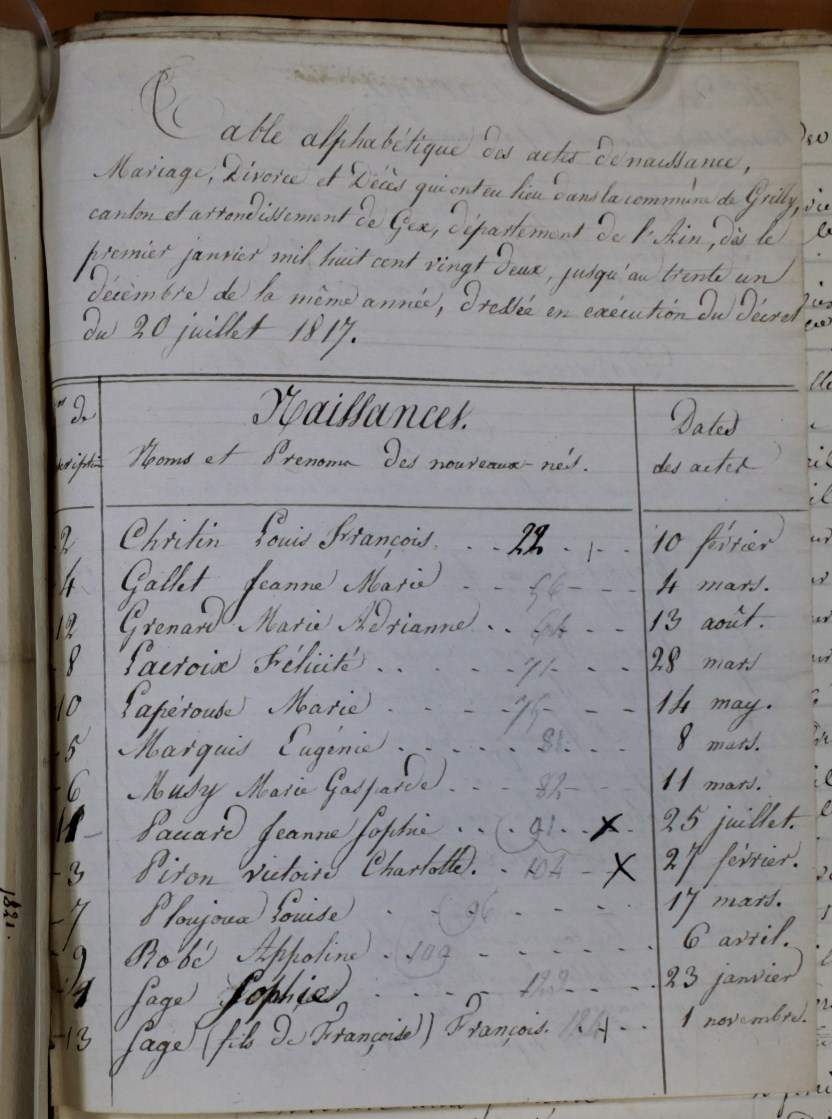 Table alphabétique des actes de naissance,
Mariage, Divorce et Décès qui ont eu lieu dans la commune de Grilly,
canton et arrondissement de Gex, département de l'Ain, dès le
premier janvier mil huit cent vingt deux, jusqu'au trente un
décembre de la même année, dressée en exécution du décret
du 20 juillet 1817.
de Naissances. Dates
Noms et Prenoms des nouveaux-nés. des actes
2 Chritin Louis François. 22 10 février
4 Gallet Jeanne Marie 56 4 mars.
12 Grenard Marie Adrianne 64 13 août.
8 Lacroix Félicité 71 28 mars
10 Lapérouse Marie 75 14 may.
5 Marquis Eugénie 81 8 mars.
6 Musy Marie Gasparde 82 11 mars.
11 Paccard Jeanne Sophie (91) X 25 juillet.
3 Piron Victoire Charlotte. 104 X 27 février.
7 Ploujoux Louise (96) 17 mars.
9 Robé Appoline (109) 6 avril.
1 Sage Sophie 122 23 janvier
13 Sage (fils de Françoise) François. 1 novembre.
1821.